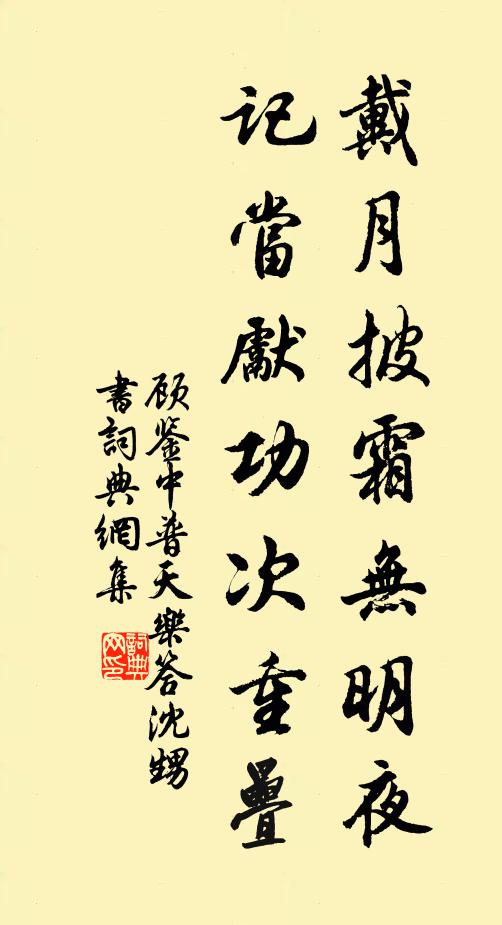 戴月披霜無明夜
記當獻功次重疊
顾鉴中普天樂答沈甥
書詞典網集
詞典
网印